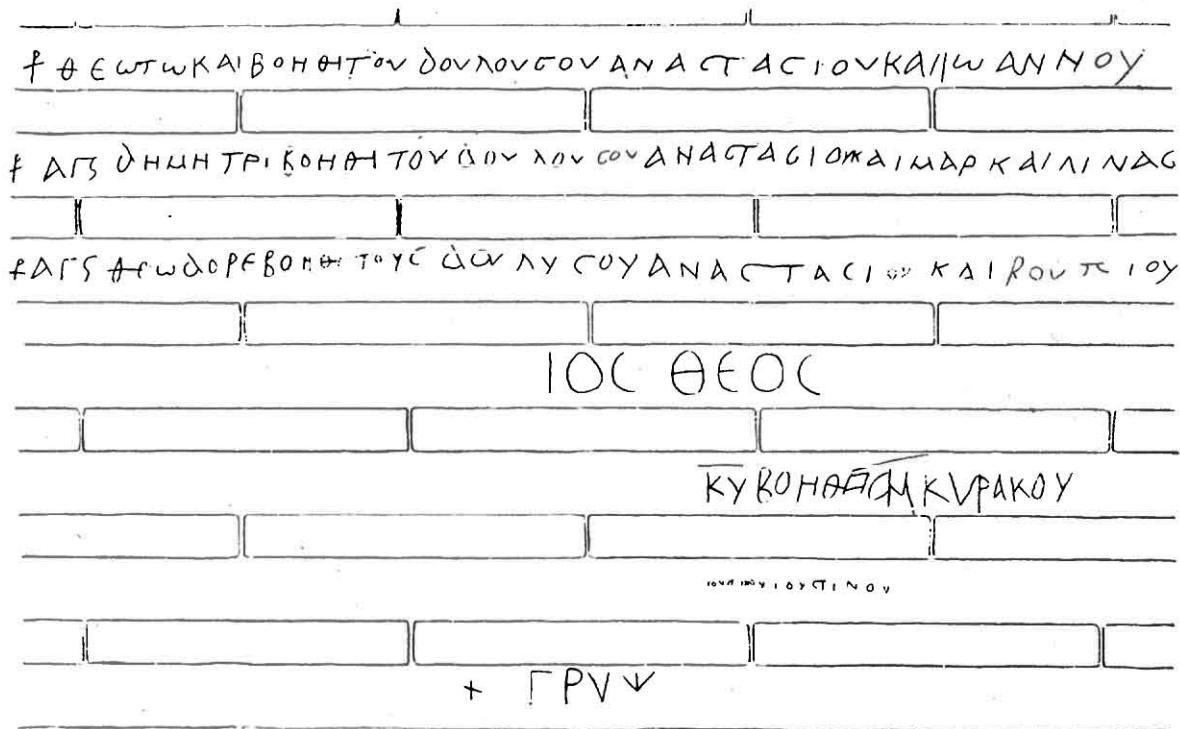 + ΘΕωΤωΚΑΙΒΟΗΘΙΤΟΝ ΔΟΥΛΟΥCΟΥ ΑΝΑCΤΑCΙΟΥΚΑΙΙωΑΝΝΟΥ
+ ΑΓS ΔΗΜΗΤΡΙ ΒΟΗΘΙ ΤΟΝ ΔΟΥΛΟΥ CΟΥ ΑΝΑCΤΑCΙΟΚΑΙΜΑΡΚΑΙΛΙΝΑC
+ΑΓS ΘΕωΔΟΡΕ ΒΟΗΘΙ ΤΟΥC ΔΟΥΛΥ CΟΥ ΑΝΑCΤΑCΙΟΥ ΚΑΙ ΒΟΥΠΙΟΥ
ΙΟC ΘΕΟC
ΚΥ ΒΟΗΘΙ ΚΥΡΑΚΟΥ
ΙΟΥCΤΙΝΟΥ
+ ΓΡΥΨ